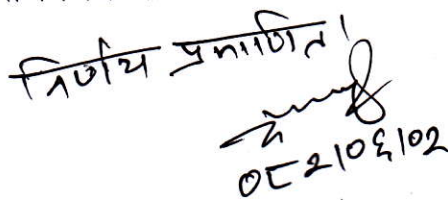 निर्णय प्रमाणित।
०८२।०६।०२